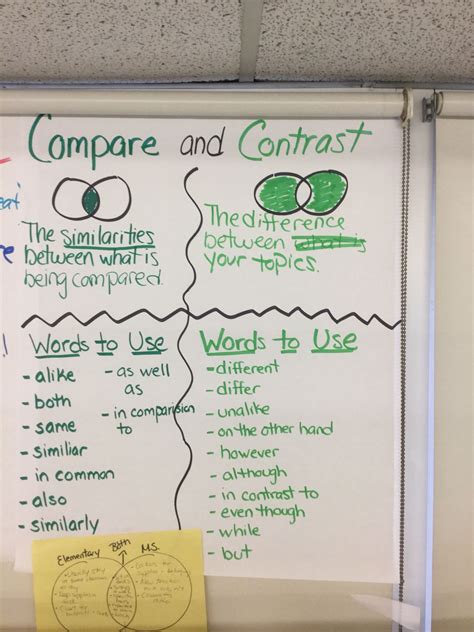 Compare and Contrast
The similarities
between what is
being compared.
The difference
between what is
your topics.
Words to Use
- alike
- both
- same
- similiar
- in common
- also
- similarly
- as well
as
- in comparision
to
Words to Use
- different
- differ
- unalike
- on the other hand
- however
- although
- in contrast to
- even though
- while
- but
Elementary Both M.S.